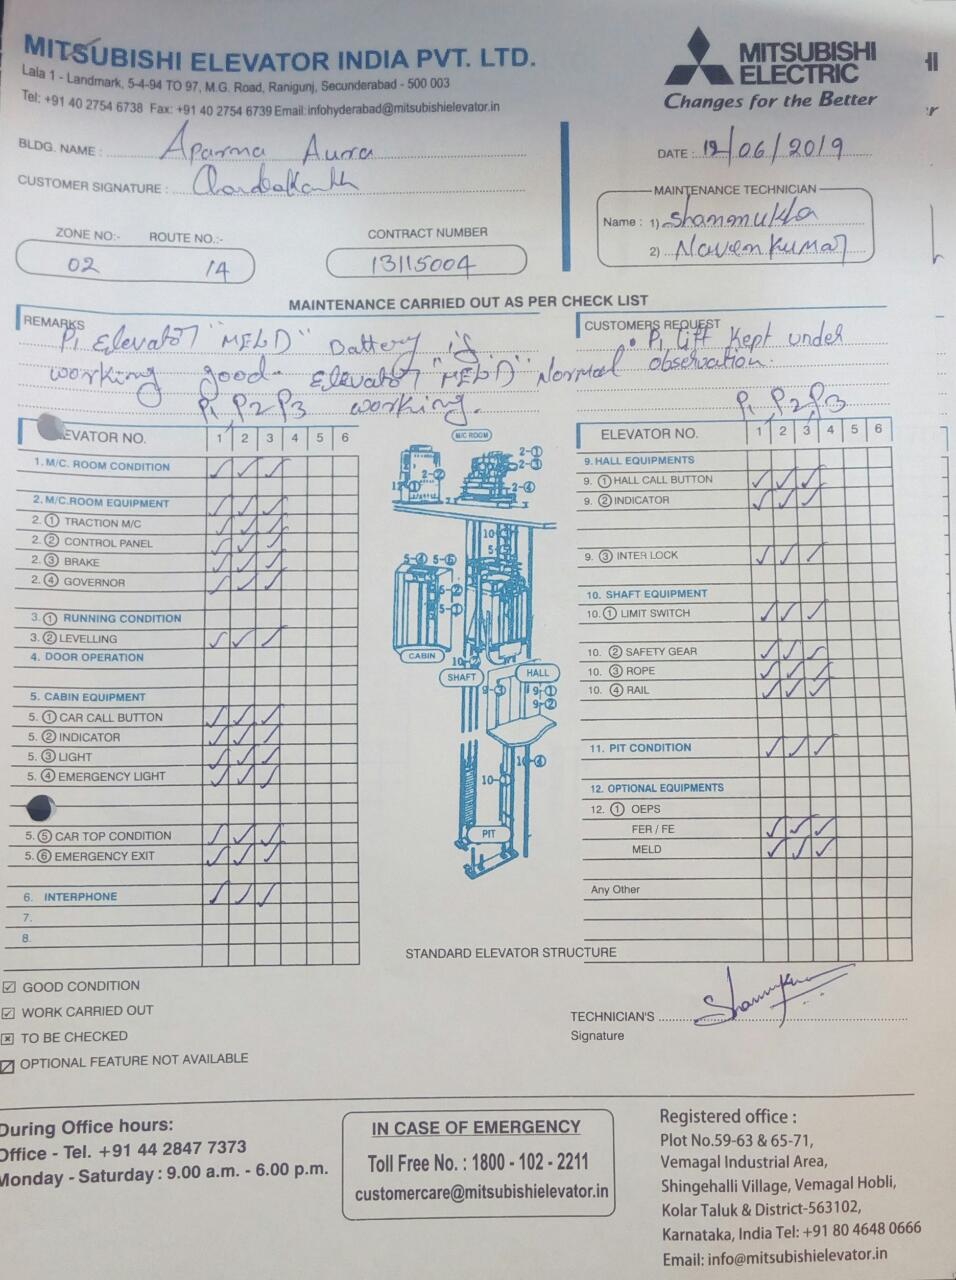 MITSUBISHI ELEVATOR INDIA PVT. LTD.
Lala 1 - Landmark, 5-4-94 TO 97, M.G. Road, Ranigunj, Secunderabad - 500 003
Tel: +91 40 2754 6738 Fax: +91 40 2754 6739 Email: infohyderabad@mitsubishielevator.in
MITSUBISHI
ELECTRIC
Changes for the Better
BLDG. NAME : Aparma Aura
CUSTOMER SIGNATURE : Chandrakanth
DATE : 12/06/2019
MAINTENANCE TECHNICIAN
Name : 1) Shanmukha
2) Naveen Kumar
ZONE NO:- ROUTE NO.:-
02 14
CONTRACT NUMBER
13115004
MAINTENANCE CARRIED OUT AS PER CHECK LIST
REMARKS
P1 Elevator "MELD" Battery is
working good. Elevator "MELD" Normal
working.
CUSTOMERS REQUEST
• P1 Lift Kept under
observation.
P1, P2, P3
EVATOR NO. 1 2 3 4 5 6
1. M/C. ROOM CONDITION ✓ ✓ ✓
2. M/C.ROOM EQUIPMENT ✓ ✓ ✓
2. ① TRACTION M/C ✓ ✓ ✓
2. ② CONTROL PANEL ✓ ✓ ✓
2. ③ BRAKE ✓ ✓ ✓
2. ④ GOVERNOR ✓ ✓ ✓
3. ① RUNNING CONDITION
3. ② LEVELLING ✓ ✓ ✓
4. DOOR OPERATION
5. CABIN EQUIPMENT
5. ① CAR CALL BUTTON ✓ ✓ ✓
5. ② INDICATOR ✓ ✓ ✓
5. ③ LIGHT ✓ ✓ ✓
5. ④ EMERGENCY LIGHT ✓ ✓ ✓
5. ⑤ CAR TOP CONDITION ✓ ✓ ✓
5. ⑥ EMERGENCY EXIT ✓ ✓ ✓
6. INTERPHONE ✓ ✓ ✓
7.
8.
M/C ROOM
2-①
2-③
2-②
2-④
10-③
5-⑤
5-④ 5-⑥
5-②
5-①
CABIN
10-②
SHAFT
HALL
9-③
9-①
9-②
10-④
10-①
PIT
STANDARD ELEVATOR STRUCTURE
P1, P2, P3
ELEVATOR NO. 1 2 3 4 5 6
9. HALL EQUIPMENTS
9. ① HALL CALL BUTTON ✓ ✓ ✓
9. ② INDICATOR ✓ ✓ ✓
9. ③ INTER LOCK ✓ ✓ ✓
10. SHAFT EQUIPMENT
10. ① LIMIT SWITCH ✓ ✓ ✓
10. ② SAFETY GEAR ✓ ✓ ✓
10. ③ ROPE ✓ ✓ ✓
10. ④ RAIL ✓ ✓ ✓
11. PIT CONDITION ✓ ✓ ✓
12. OPTIONAL EQUIPMENTS
12. ① OEPS
FER / FE ✓ ✓ ✓
MELD ✓ ✓ ✓
Any Other
☑ GOOD CONDITION
☑ WORK CARRIED OUT
☒ TO BE CHECKED
OPTIONAL FEATURE NOT AVAILABLE
TECHNICIAN'S
Signature
During Office hours:
Office - Tel. +91 44 2847 7373
Monday - Saturday : 9.00 a.m. - 6.00 p.m.
IN CASE OF EMERGENCY
Toll Free No. : 1800 - 102 - 2211
customercare@mitsubishielevator.in
Registered office :
Plot No.59-63 & 65-71,
Vemagal Industrial Area,
Shingehalli Village, Vemagal Hobli,
Kolar Taluk & District-563102,
Karnataka, India Tel: +91 80 4648 0666
Email: info@mitsubishielevator.in